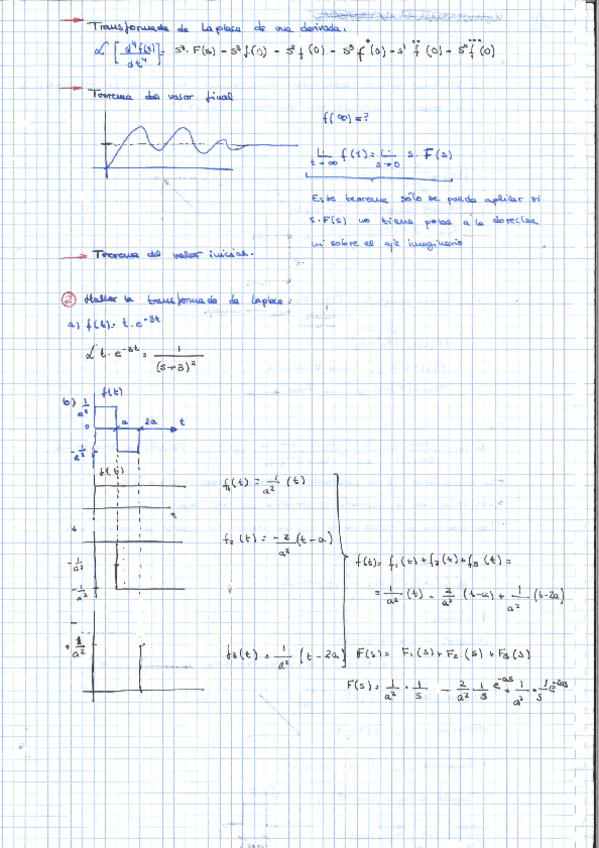 → Transformada de Laplace de una derivada.
ℒ [d⁴f(t)/dt⁴] = s⁴·F(s) - s³f(0) - s²f(0) - s³ḟ(0) - s¹ f̈(0) - s⁰f⃛(0)
→ Teorema del valor final
f(∞)=?
Lim t→∞ f(t) = Lim s→0 s·F(s)
Este teorema sólo se puede aplicar si
s·F(s) no tiene polos a la derecha
ni sobre el eje imaginario
→ Teorema del valor inicial.
② Hallar la transformada de Laplace.
a) f(t) = t·e^-3t
ℒ t·e^-3t = 1/(s+3)²
b) f(t)
1/a²
0 a 2a t
-1/a²
f(t)
f₁(t) = 1/a² (t)
t
+
f₂(t) = -2/a² (t-a)
-1/a²
f(t) = f₁(t)+f₂(t)+f₃(t) =
-1/a²
= 1/a² (t) - 2/a² (t-a) + 1/a² (t-2a)
+ 1/a²
f₃(t) = 1/a² (t-2a) F(s) = F₁(s)+F₂(s)+F₃(s)
F(s) = 1/a² · 1/s - 2/a² · 1/s e^-as + 1/a² · 1/s e^-2as